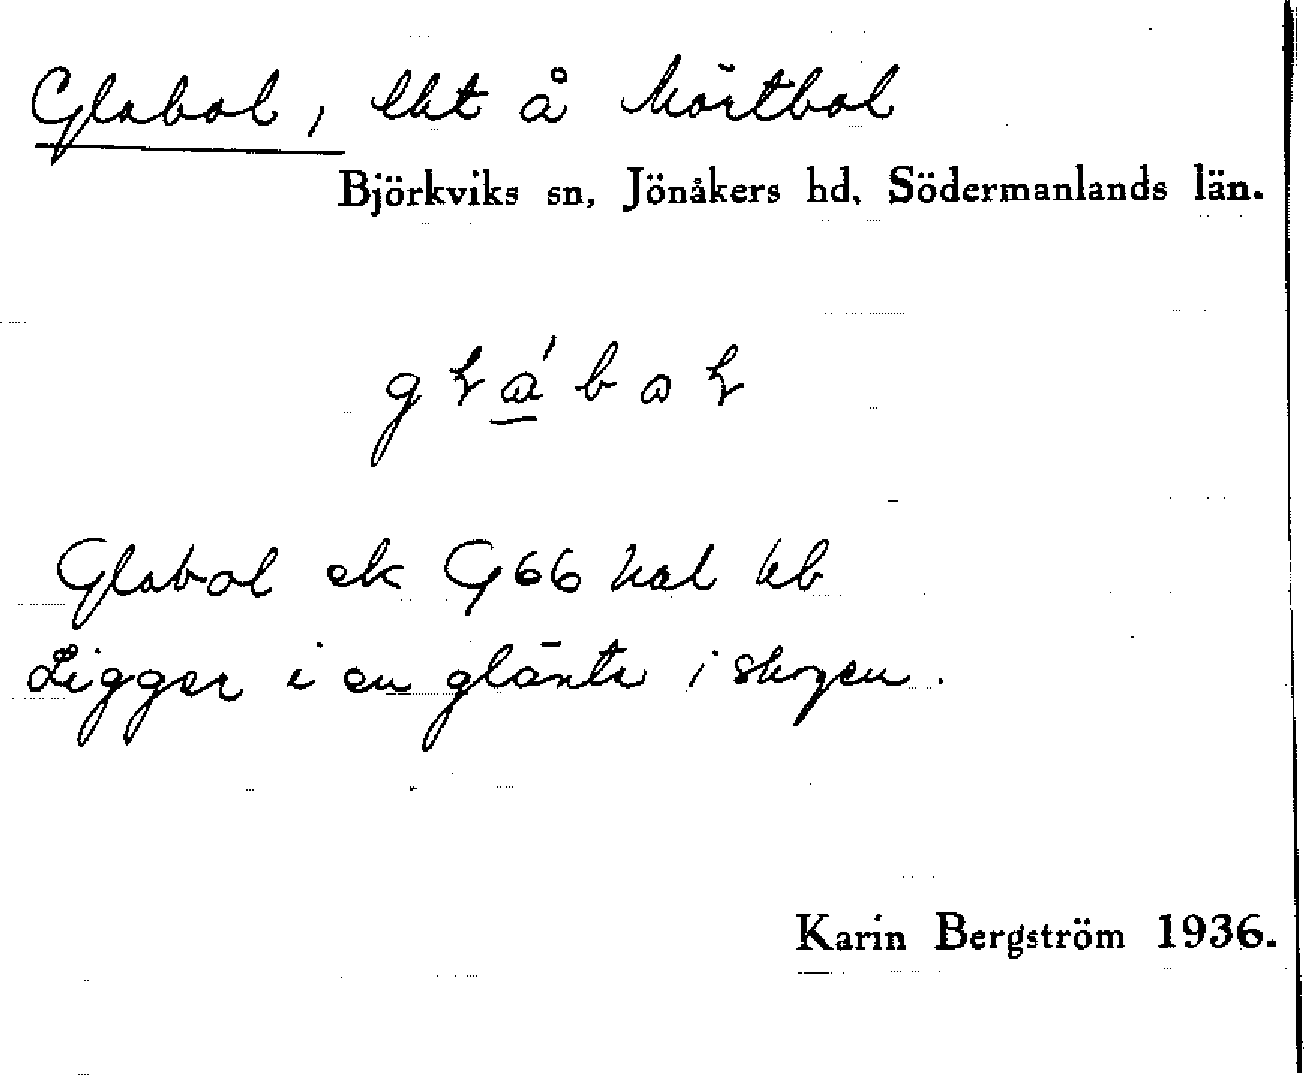 Glabol, lht å Mörtbol
Björkviks sn, Jönåkers hd, Södermanlands län.
Glabol ek G66 kal
Ligger i en glänta i skogen.
Karin Bergström 1936.